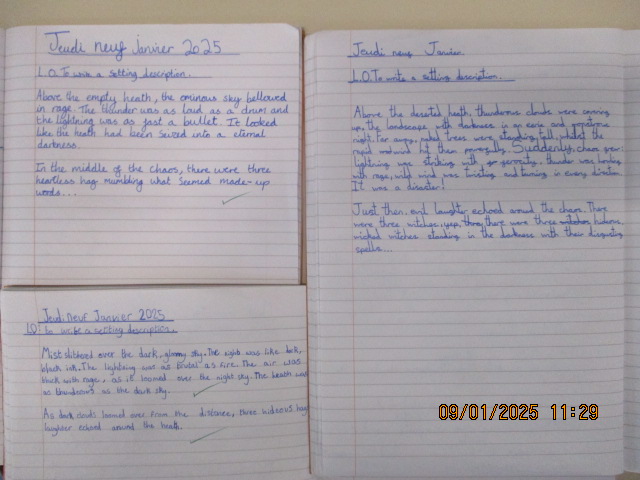 Jeudi neuf Janvier 2025
L.O. To write a setting description.
Above the empty heath, the ominous sky bellowed
in rage. The thunder was as loud as a drum and
the lightning was as fast a bullet. It looked
like the heath had been sered into a eternal
darkness.
In the middle of the chaos, there were three
heartless hag mumbling what seemed made-up
words...
Jeudi neuf Janvier 2025
LO: to write a setting description.
Mist slithered over the dark, gloomy sky. The night was like dark,
black ink. The lightning was as brutal as fire. The air was
black with rage, as it loomed over the night sky. The heath was
as thunderous as the dark sky.
As dark clouds loomed over from the distance, three hideous hag
laughter echoed around the heath.
Jeudi neuf Janvier.
L.O. To write a setting description.
Above the deserted heath, thunderous clouds were
up, the landscape with darkness in an eerie and
night. Far away, naked trees were standing tall, whilst the
rapid wind hit them Suddenly, chaos grew:
lightning was striking with thunder was
with rage, wild wind was twisting and turning in every direction.
It was a disaster!
Just then, evil laughter echoed around the chaos. There
were three witches, yep, there were three hideous,
wicked witches standing in the darkness with their disgusting
spells...
09/01/2025 11:29